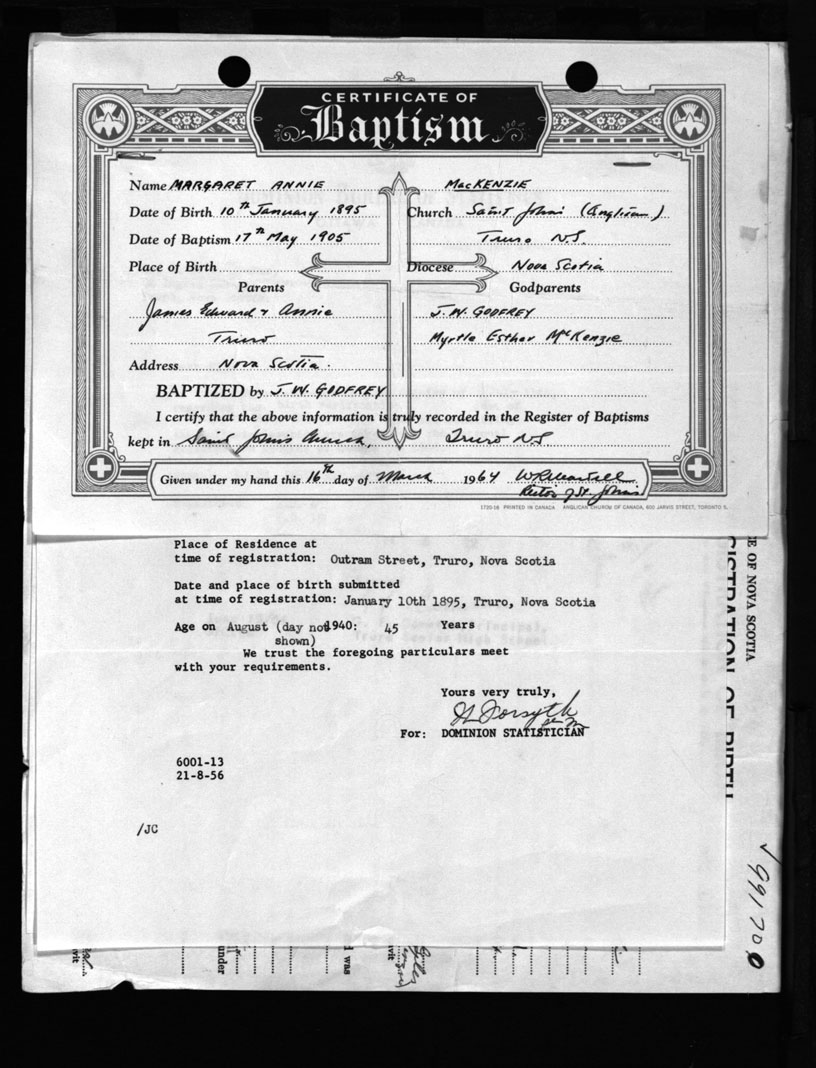 CERTIFICATE OF
Baptism
Name MARGARET ANNIE MacKENZIE
Date of Birth 10th January 1895 Church Saint John's (Anglican)
Date of Baptism 17th May 1905 Truro N.S.
Place of Birth Diocese Nova Scotia
Parents Godparents
James Edward & Annie J. W. GODFREY
Truro Myrtle Esther McKenzie
Address Nova Scotia.
BAPTIZED by J. W. GODFREY
I certify that the above information is truly recorded in the Register of Baptisms
kept in Saint John's Church, Truro N.S.
Given under my hand this 16th day of March 1964
Rector of St. John's
1720-16 PRINTED IN CANADA ANGLICAN CHURCH OF CANADA, 600 JARVIS STREET, TORONTO 5.
Place of Residence at
time of registration: Outram Street, Truro, Nova Scotia
Date and place of birth submitted
at time of registration: January 10th 1895, Truro, Nova Scotia
Age on August (day not 1940: 45 Years
shown)
We trust the foregoing particulars meet
with your requirements.
Yours very truly,
Forsyth
For: DOMINION STATISTICIAN
6001-13
21-8-56
/JC
E OF NOVA SCOTIA
ISTRATION OF BIRTH
991700
under
d was